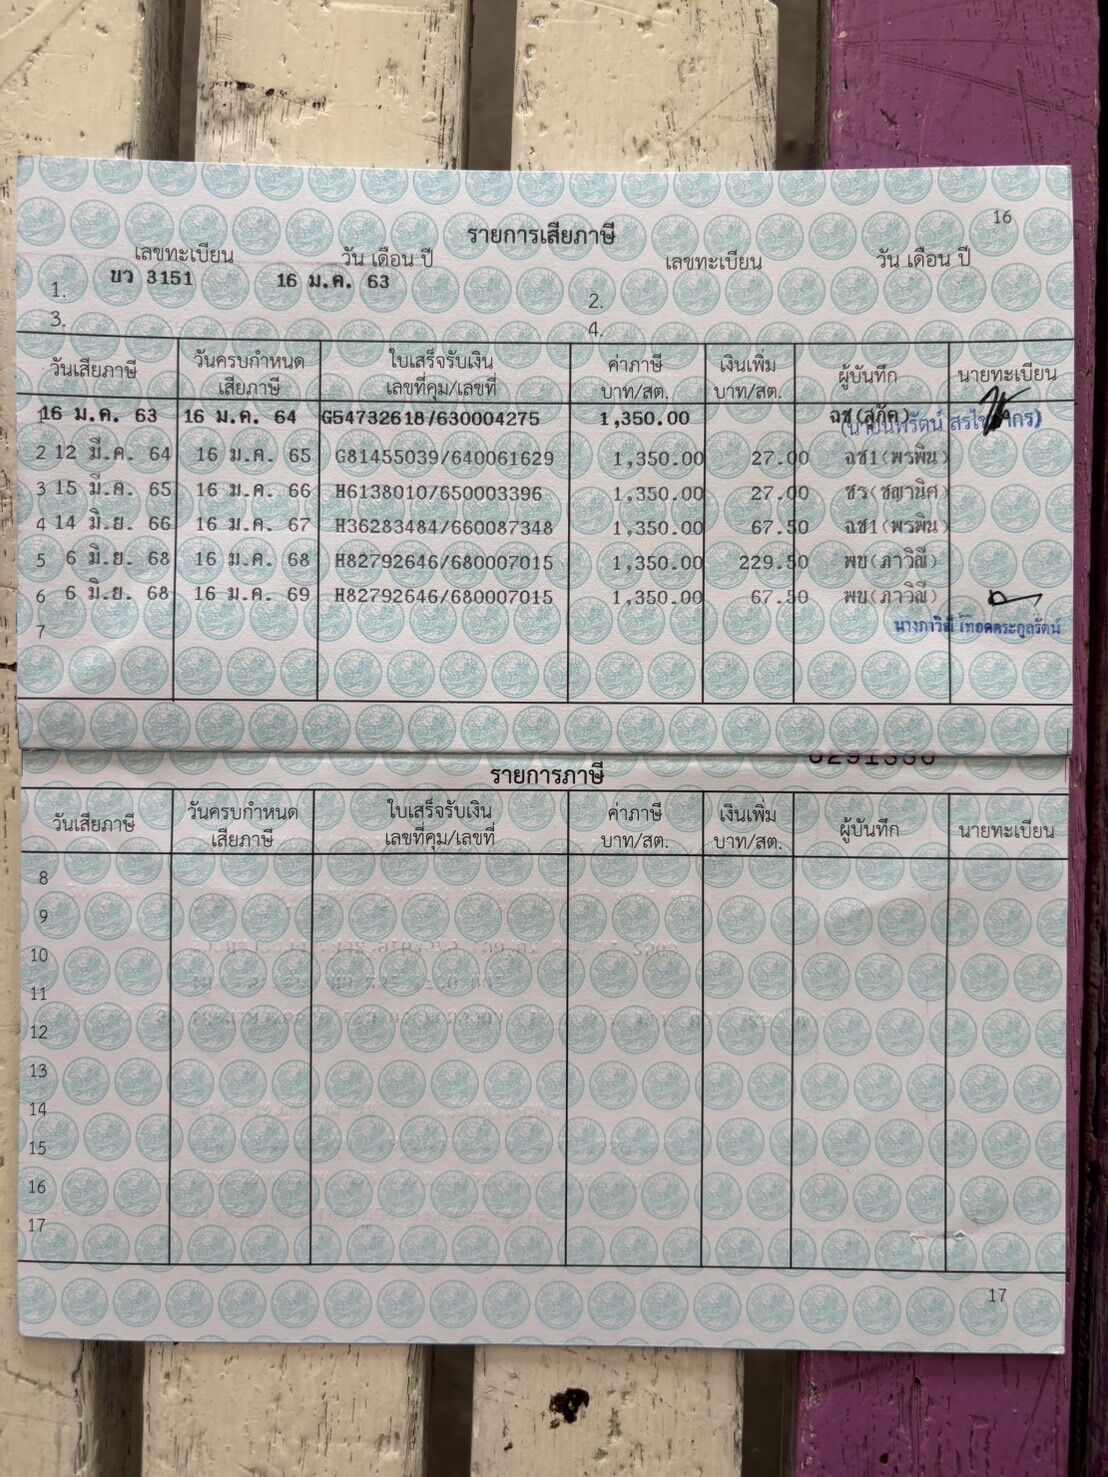 16
รายการเสียภาษี
เลขทะเบียน วัน เดือน ปี เลขทะเบียน วัน เดือน ปี
1. ขว 3151 16 ม.ค. 63 2.
3. 4.
วันเสียภาษี วันครบกำหนดเสียภาษี ใบเสร็จรับเงิน เลขที่คุม/เลขที่ ค่าภาษี บาท/สต. เงินเพิ่ม บาท/สต. ผู้บันทึก นายทะเบียน
1 16 ม.ค. 63 16 ม.ค. 64 G54732618/630004275 1,350.00 ฉช(สุภัค)
2 12 มี.ค 64 16 ม.ค. 65 G81455039/640061629 1,350.00 27.00 ฉช1(พรพิน)
3 15 มี.ค. 65 16 ม.ค. 66 H6138010/650003396 1,350.00 27.00 ชร(ชญานิศ)
4 14 มิ.ย. 66 16 ม.ค. 67 H36283484/660087348 1,350.00 67.50 ฉช1(พรพิน)
5 6 มิ.ย. 68 16 ม.ค. 68 H82792646/680007015 1,350.00 229.50 พข(ภาวิณี)
6 6 มิ.ย. 68 16 ม.ค. 69 H82792646/680007015 1,350.00 67.50 พข(ภาวิณี)
นางภาวิณี
7
รายการภาษี
วันเสียภาษี วันครบกำหนดเสียภาษี ใบเสร็จรับเงิน เลขที่คุม/เลขที่ ค่าภาษี บาท/สต. เงินเพิ่ม บาท/สต. ผู้บันทึก นายทะเบียน
8
9
10
11
12
13
14
15
16
17
17